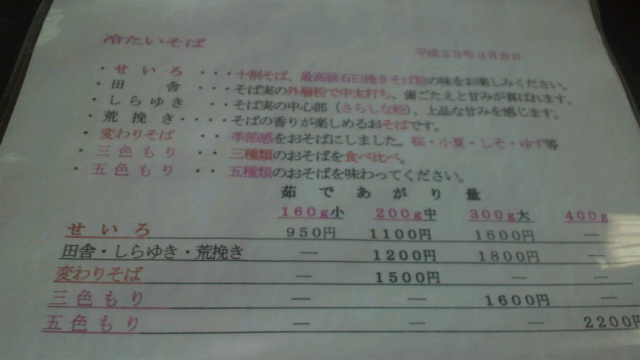 冷たいそば
平成23年3月吉日
・せいろ・・・十割そば、最高級石臼挽きそば粉の味をお楽しみください。
・田舎・・・そば実の外層粉で中太打ち、歯ごたえと甘みが喜ばれます。
・しらゆき・・・そば実の中心部(さらしな粉)、上品な甘みを感じます。
・荒挽き・・・そばの香りが楽しめるおそばです。
・変わりそば・・季節感をおそばにしました。桜・小夏・しそ・ゆず等
・三色もり・・三種類のおそばを食べ比べ。
・五色もり・・五種類のおそばを味わってください。
茹であがり量
160g小 200g中 300g大 400g
せいろ 950円 1100円 1600円 —
田舎・しらゆき・荒挽き — 1200円 1800円
変わりそば — 1500円 — —
三色もり — — 1600円 —
五色もり — — — 2200円